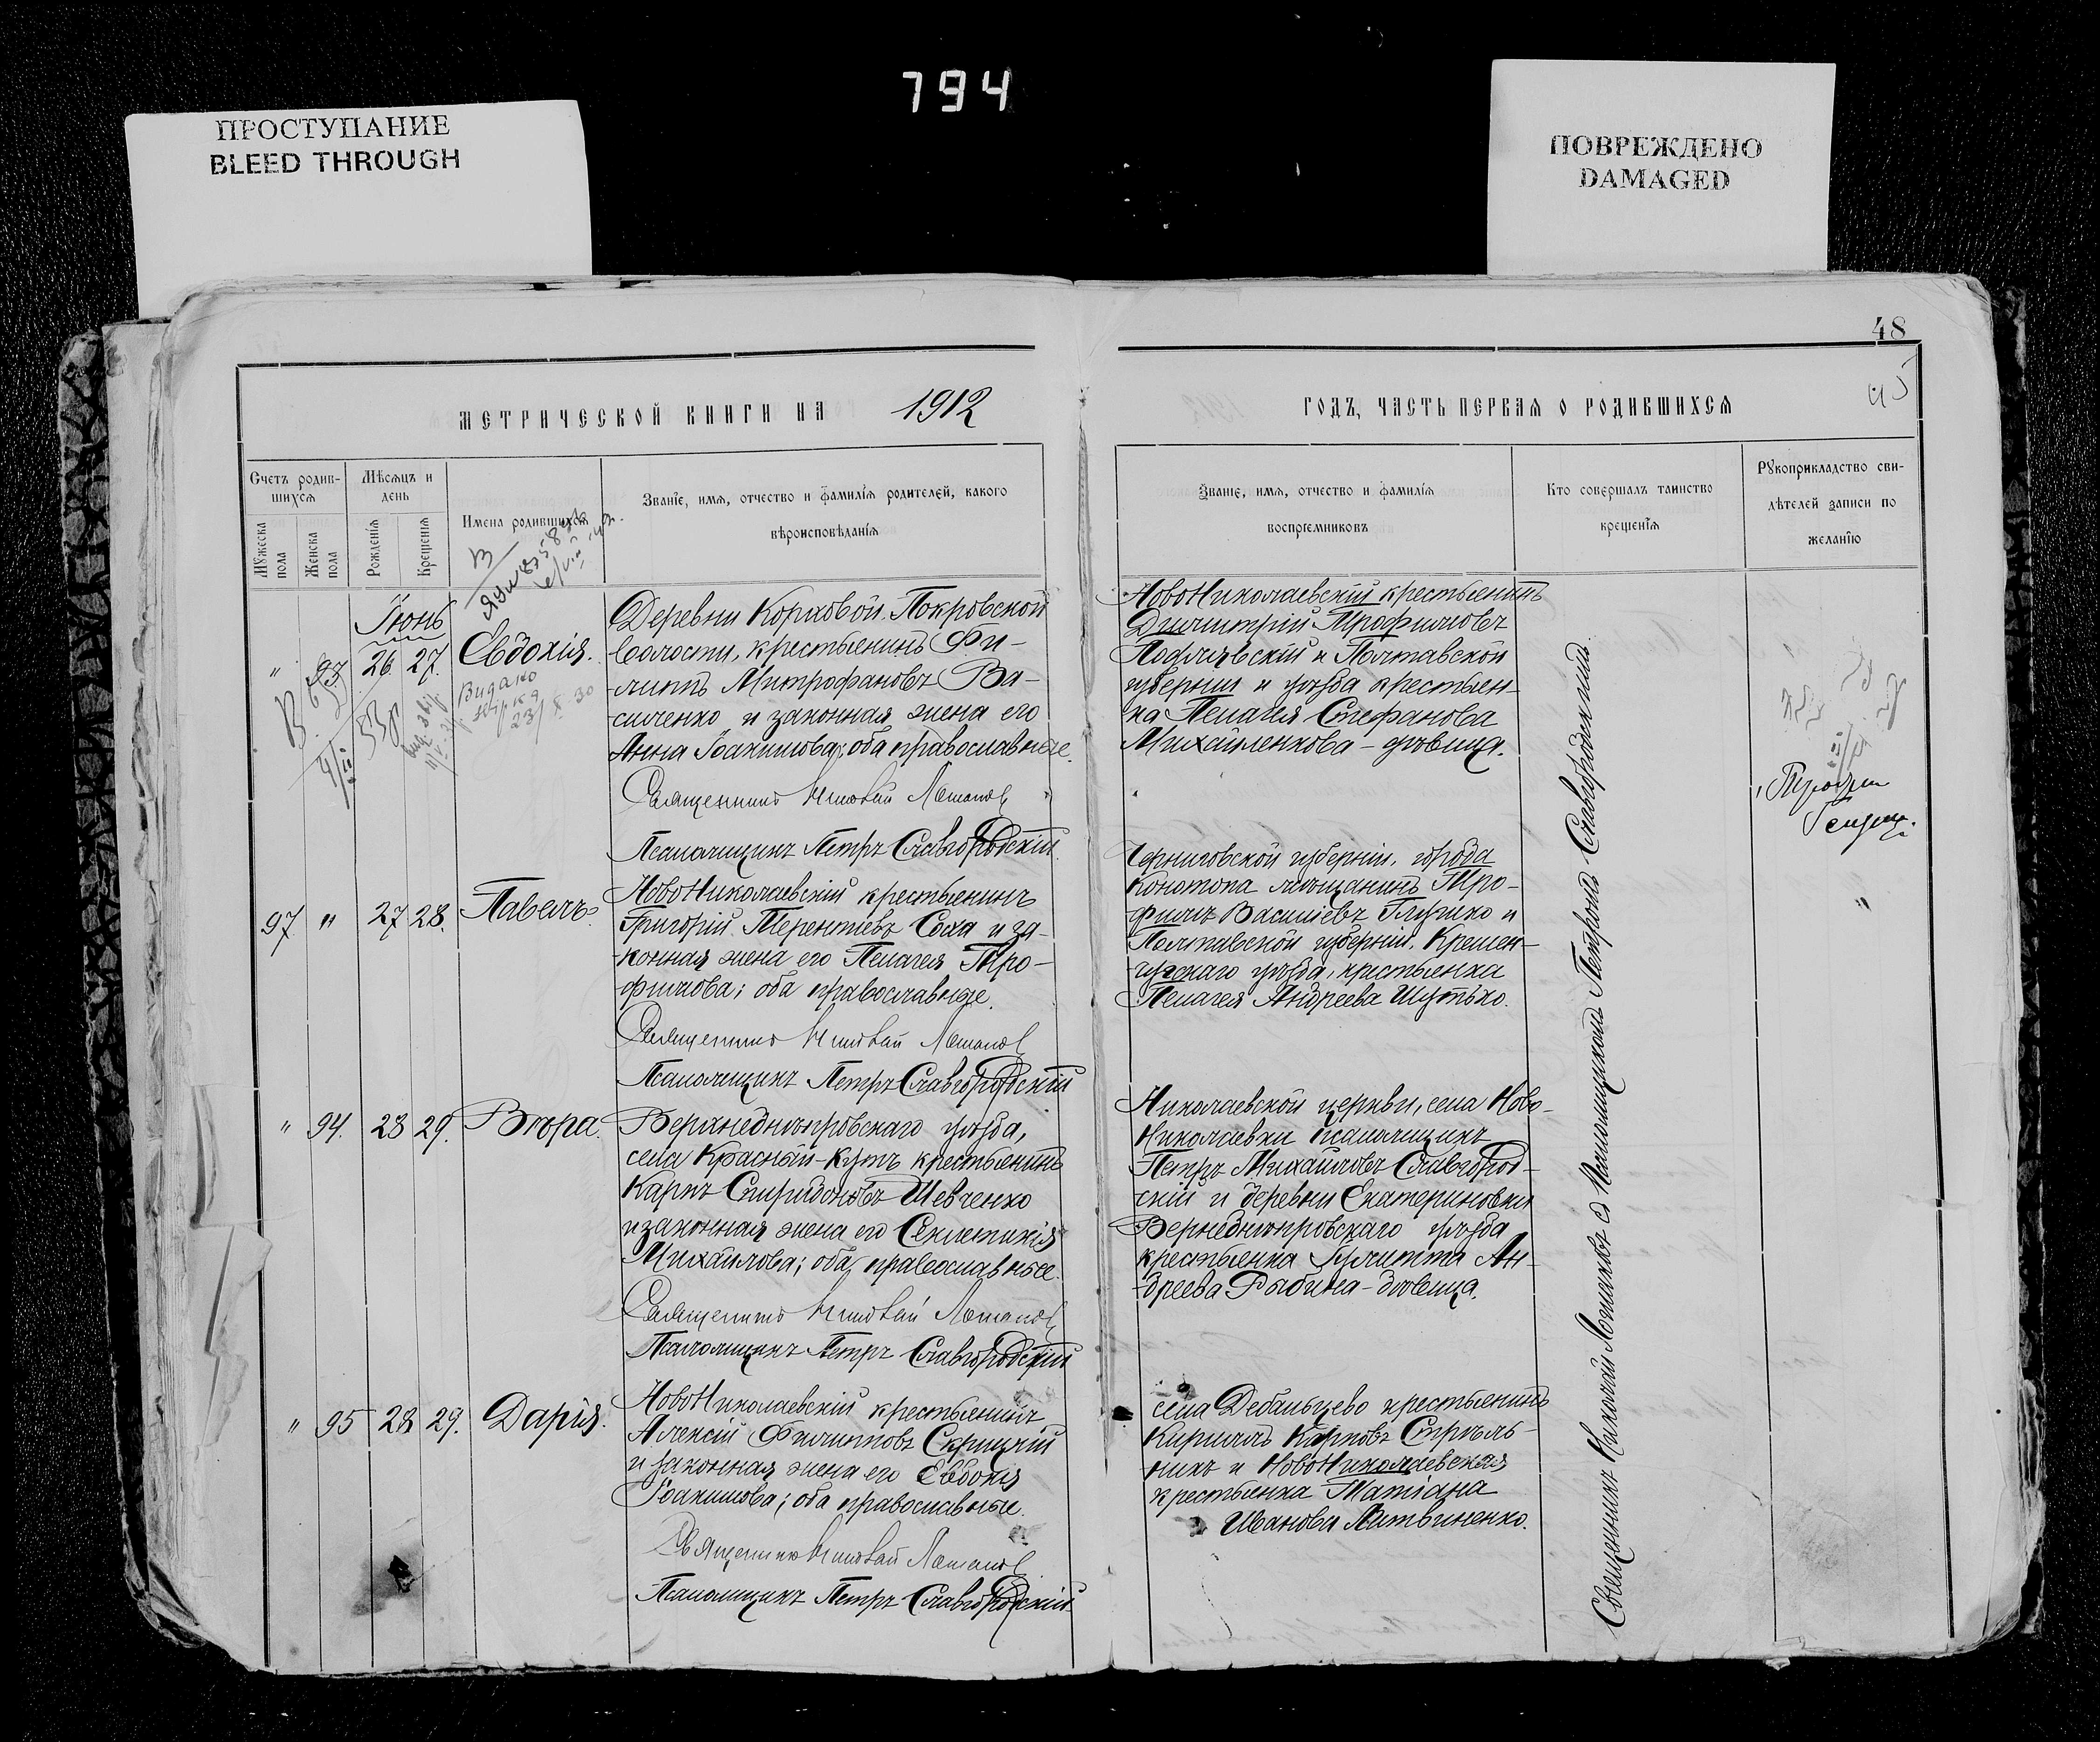 794
ПРОСТУПАНИЕ
BLEED THROUGH
ПОВРЕЖДЕНО
DAMAGED
48
45
МЕТРИЧЕСКОЙ КНИГИ НА 1912
ГОДЪ, ЧАСТЬ ПЕРВАЯ О РОДИВШИХСЯ
Счетъ родив-
шихся
Мужеска
пола
Женска
пола
Мѣсяцъ и
день
Рожденія
Крещенія
Имена родившихся
Званіе, имя, отчество и фамилія родителей, какого
вѣроисповѣданія
Званіе, имя, отчество и фамилія
воспріемниковъ
Кто совершалъ таинство
крещенія
Рукоприкладство сви-
дѣтелей записи по
желанію
Іюнь
" 93 26 27. Евдокія.
Видано
23/X 30
Деревни Корховой. Покровской
волости, крестьянинъ Фи-
липпъ Митрофановъ Ва-
силенко и законная жена его
Анна Іоакимова; оба православные.
Священникъ Николай
Псаломщикъ Петръ Славгородскій
НовоНиколаевскій крестьянинъ
Димитрій Трофимовъ
и Полтавской
губерніи и уѣзда крестьян-
ка Пелагея Стефанова
Михайленкова - дѣвица.
97 " 27 28. Павелъ.
НовоНиколаевскій крестьянинъ
Григорій Терентіевъ Соха и за-
конная жена его Пелагея Тро-
фимова; оба православные.
Священникъ Николай
Псаломщикъ Петръ Славгородскій
Черниговской губерніи, города
Конотопа мѣщанинъ Тро-
фимъ Василіевъ и
Полтавской губерніи, Кремен-
чугскаго уѣзда, крестьянка
Пелагея Андреева Шутько.
" 94. 28 29. Вѣра.
Верхнеднѣпровскаго уѣзда,
села Красный-Кутъ крестьянинъ
Карпъ Спиридоновъ Шевченко
и законная жена его Секлетикія
Михайлова; оба православные.
Священникъ Николай
Псаломщикъ Петръ Славгородскій
Николаевской церкви, села Ново-
Николаевки псаломщикъ
Петръ Михайловъ Славгород-
скій и деревни Екатериновки
Вернеднѣпровскаго уѣзда
крестьянка Іулитта Ан-
дреева Рабина - вдовица.
" 95 28 29. Дарія.
НовоНиколаевскій крестьянинъ
Алексій Филипповъ Скрицкій
и законная жена его Евдокія
Іоакимова; оба православные.
Священникъ Николай
Псаломщикъ Петръ Славгородскій
села Дебальцево крестьянинъ
Кириллъ Карповъ Стрѣль-
никъ и НовоНиколаевская
крестьянка Татіана
Иванова Литвиненко.
Священникъ Николай съ Псаломщикомъ Петромъ Славгородскимъ